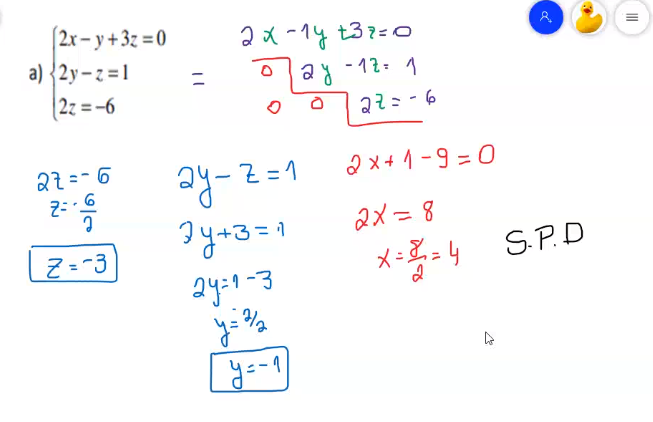 a) {2x – y + 3z = 0
2y – z = 1
2z = –6
=
2x -1y +3z=0
0 2y -1z= 1
0 0 2z= -6
2z=-6
z=-6/2
z=-3
2y-z=1
2y+3=1
2y=1-3
y=-2/2
y=-1
2x+1-9=0
2x=8
x=8/2=4
S.P.D